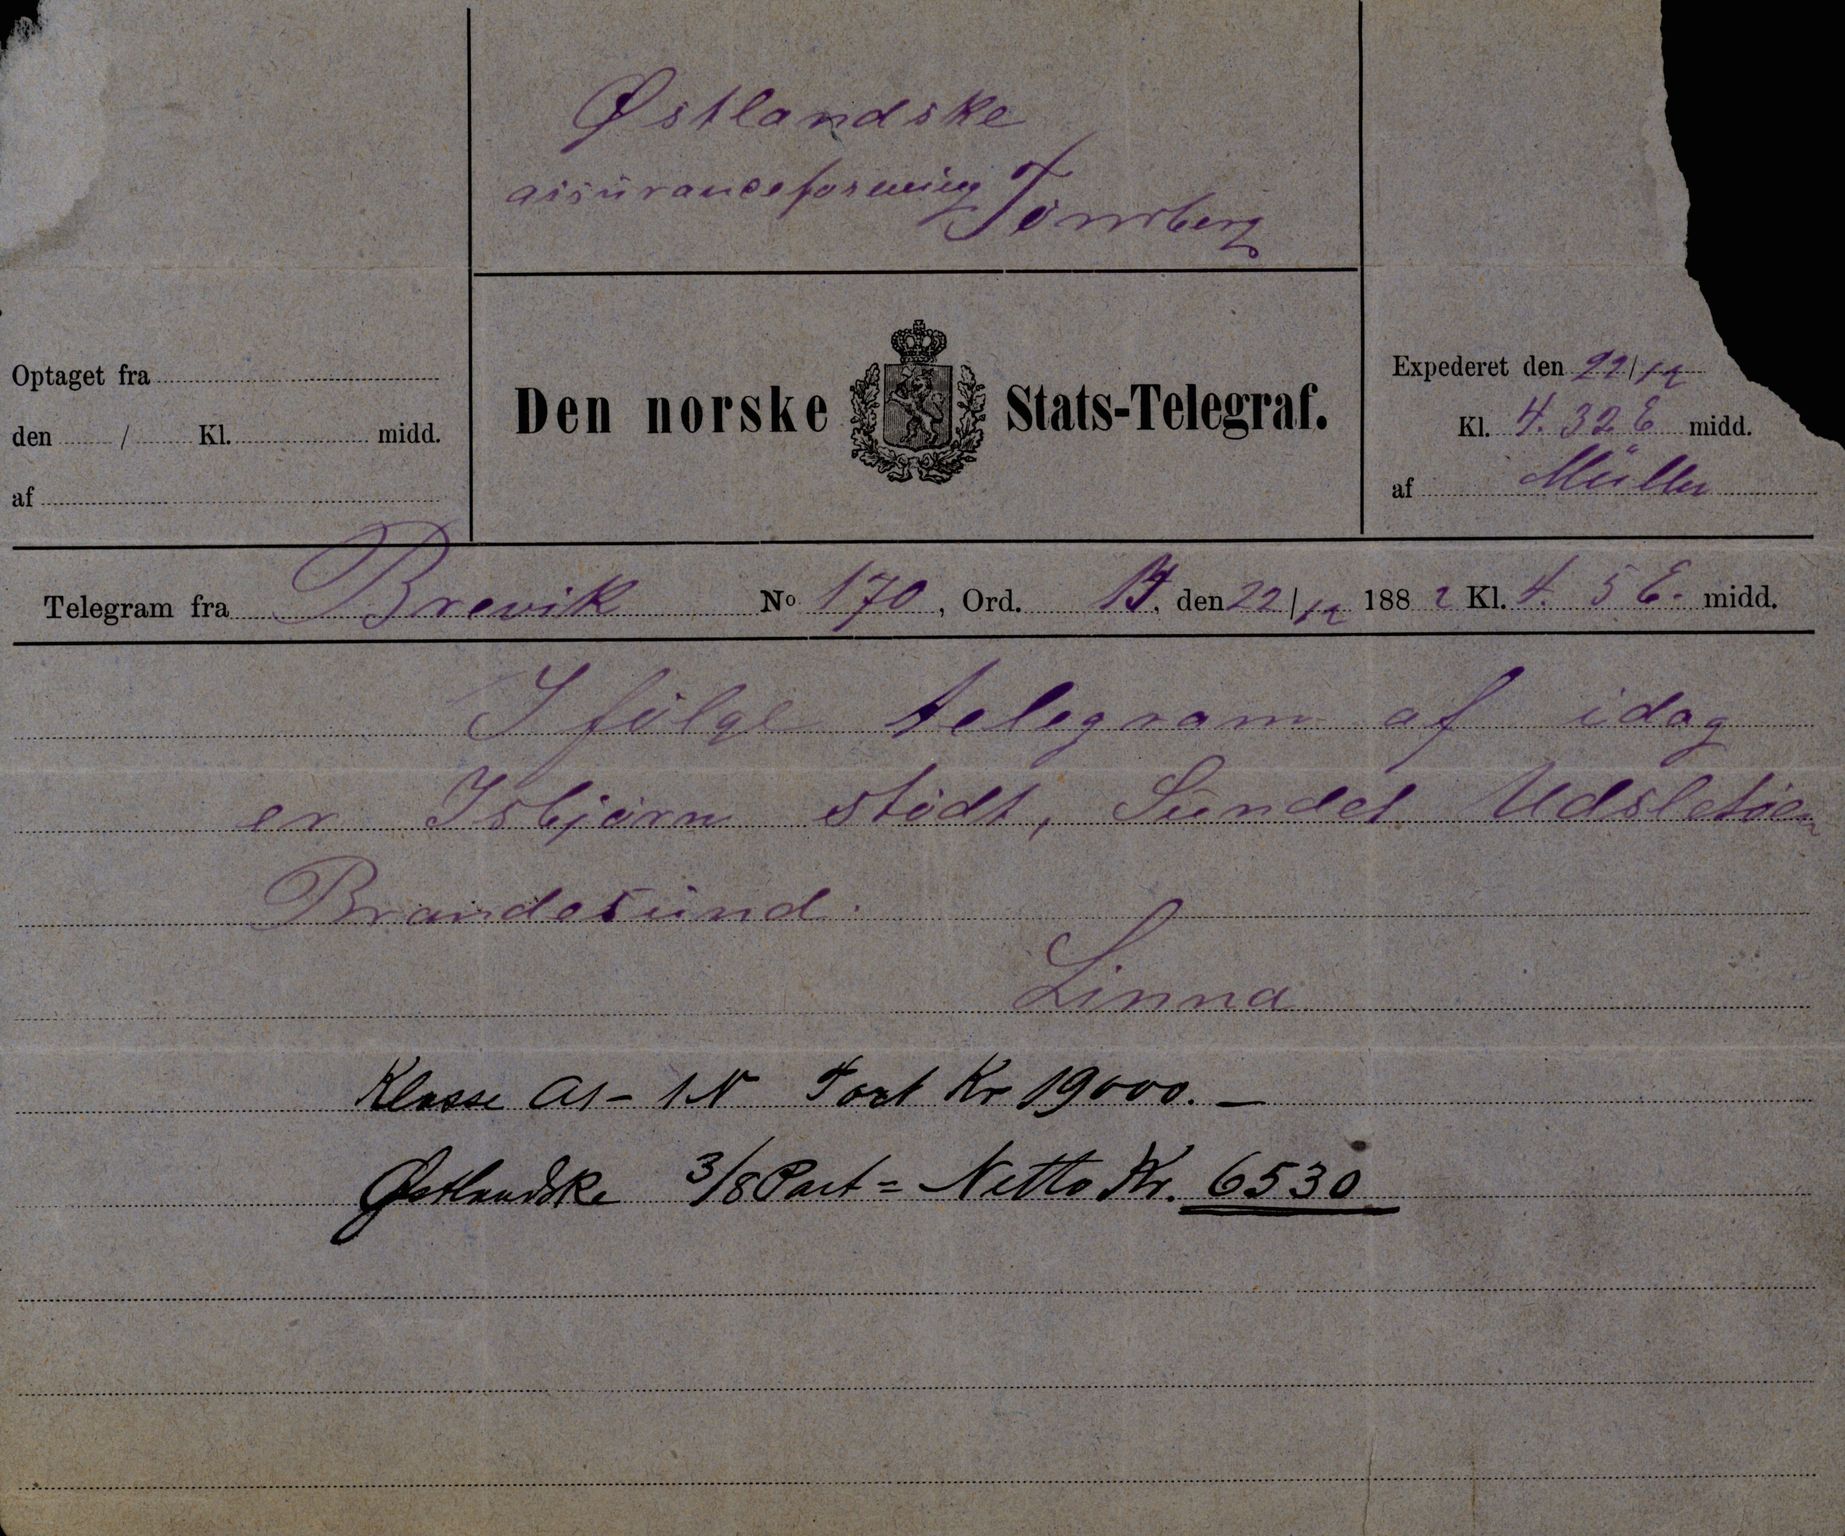 Østlandske
assuranceforening Tönsberg
Optaget fra
den / Kl. midd.
af
Den norske Stats-Telegraf.
Expederet den 22/12
Kl. 4.32 E midd.
af Müller
Telegram fra Brevik No. 170, Ord. 14, den 22/12 1882 Kl. 4. 5 E. midd.
Ifölge telegram af idag
er Isbjörn stödt, Sundet Udsletöen
Brandesund.
Linna
Klasse A1 - 1N Taxt Kr 19000. —
Østlandske 3/8 Part = Netto Kr. 6530